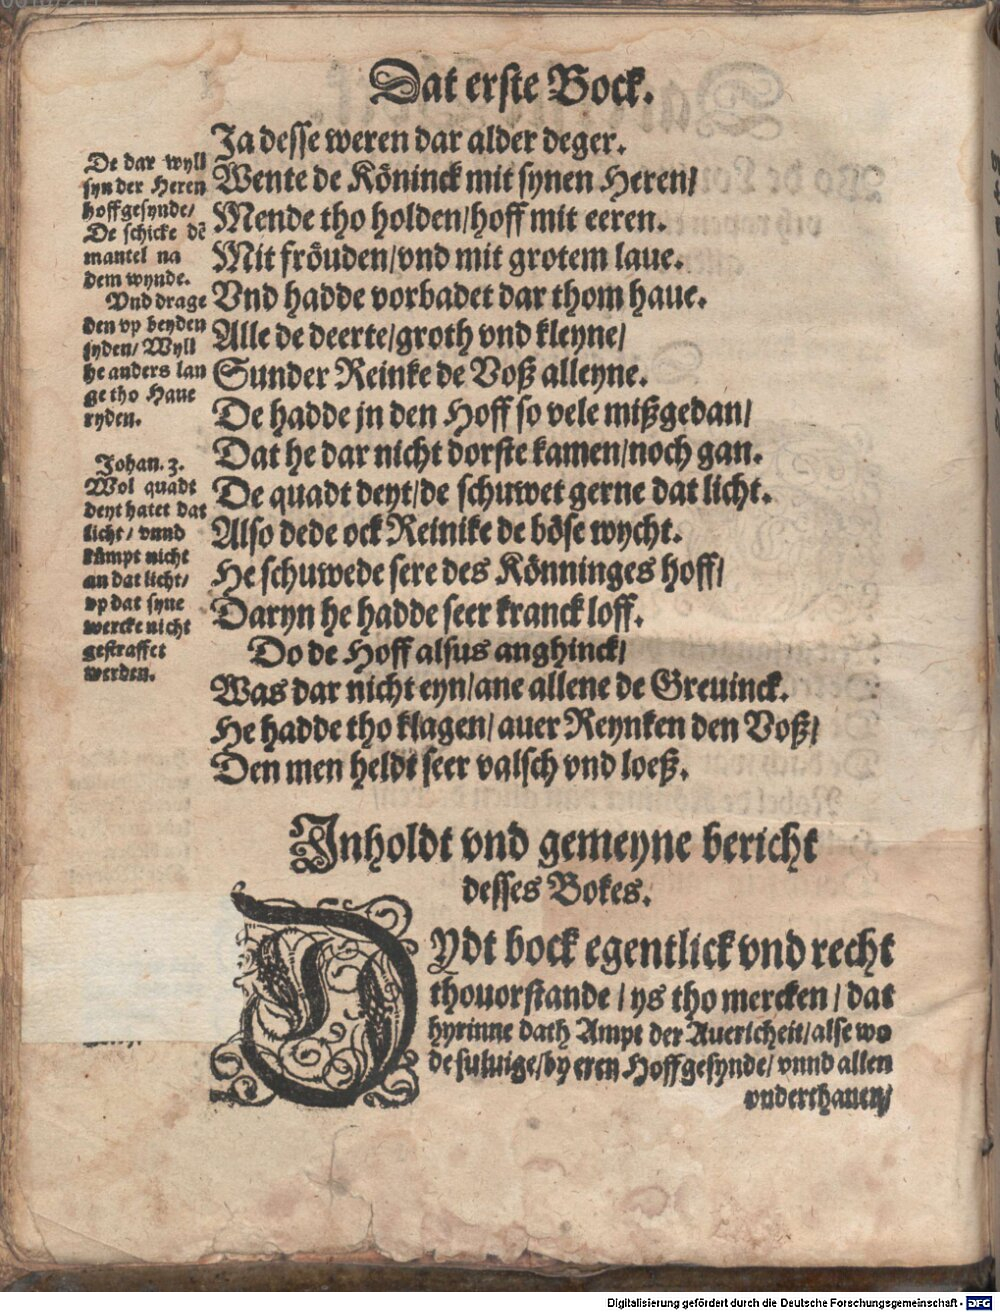 Dat erste Bock.
Ja desse weren dar alder deger.
Wente de Köninck mit synen Heren/
Mende tho holden/hoff mit eeren.
Mit fröuden/vnd mit grotem laue.
Vnd hadde vorbadet dar thom haue.
Alle de deerte/groth vnd kleyne/
Sunder Reinke de Voß alleyne.
De hadde jn den Hoff so vele mißgedan/
Dat he dar nicht dorste kamen/noch gan.
De quadt deyt/de schuwet gerne dat licht.
Also dede ock Reinike de böse wycht.
He schuwede sere des Könninges hoff/
Daryn he hadde seer kranck loff.
Do de Hoff alsus anghinck/
Was dar nicht eyn/ane allene de Greuinck.
He hadde tho klagen/auer Reynken den Voß/
Den men heldt seer valsch vnd loeß.
De dar wyll
syn der Heren
hoffgesynde/
De schicke dē
mantel na
dem wynde.
Vnd drage
den vp beyden
syden/Wyll
he anders lan
ge tho Haue
ryden.
Johan. 3.
Wol quadt
deyt hatet dat
licht/ vnnd
kümpt nicht
an dat licht/
vp dat syne
wercke nicht
gestraffet
werden.
Inholdt vnd gemeyne bericht
desses Bokes.
DYdt bock egentlick vnd recht
thouorstande/ys tho mercken/dat
hyrinne dath Ampt der Auericheit/alse wo
de suluige/by eren Hoffgesynde/vnnd allen
vnderthanen/
Digitalisierung gefördert durch die Deutsche Forschungsgemeinschaft - DFG